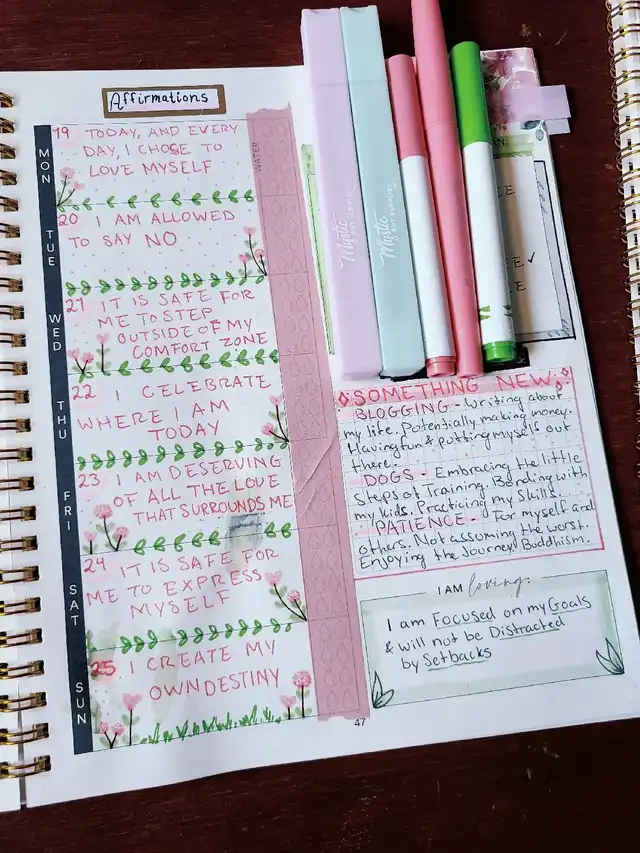 Affirmations
MON
19 TODAY, AND EVERY
DAY, I CHOSE TO
LOVE MYSELF
WATER
TUE
20 I AM ALLOWED
TO SAY NO
WED
21 IT IS SAFE FOR
ME TO STEP
OUTSIDE OF MY
COMFORT ZONE
THU
22 I CELEBRATE
WHERE I AM
TODAY
FRI
23 I AM DESERVING
OF ALL THE LOVE
THAT SURROUNDS ME
SAT
24 IT IS SAFE FOR
ME TO EXPRESS
MYSELF
SUN
25 I CREATE MY
OWN DESTINY
47
Mystic
Mystic
SOMETHING NEW:
BLOGGING - Writing about
my life. Potentially making money.
Having fun & putting myself out
there.
DOGS - Embracing the little
Steps of Training. Bonding with
my kids. Practicing my Skills.
PATIENCE - For myself and
others. Not assuming the worst.
Enjoying the Journey. Buddhism.
I AM loving:
I am Focused on my Goals
& will not be Distracted
by Setbacks